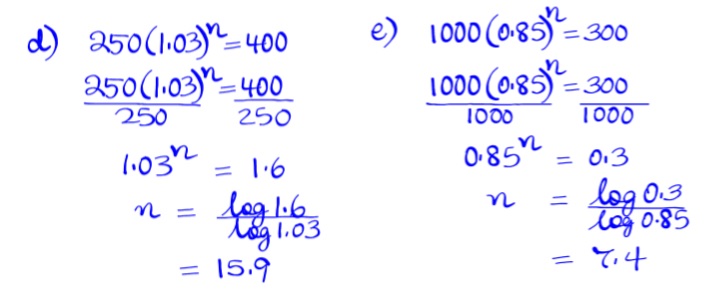 d) 250(1.03)ⁿ = 400
250(1.03)ⁿ = 400
250 250
1.03ⁿ = 1.6
n = log 1.6
log 1.03
= 15.9
e) 1000(0.85)ⁿ = 300
1000(0.85)ⁿ = 300
1000 1000
0.85ⁿ = 0.3
n = log 0.3
log 0.85
= 7.4